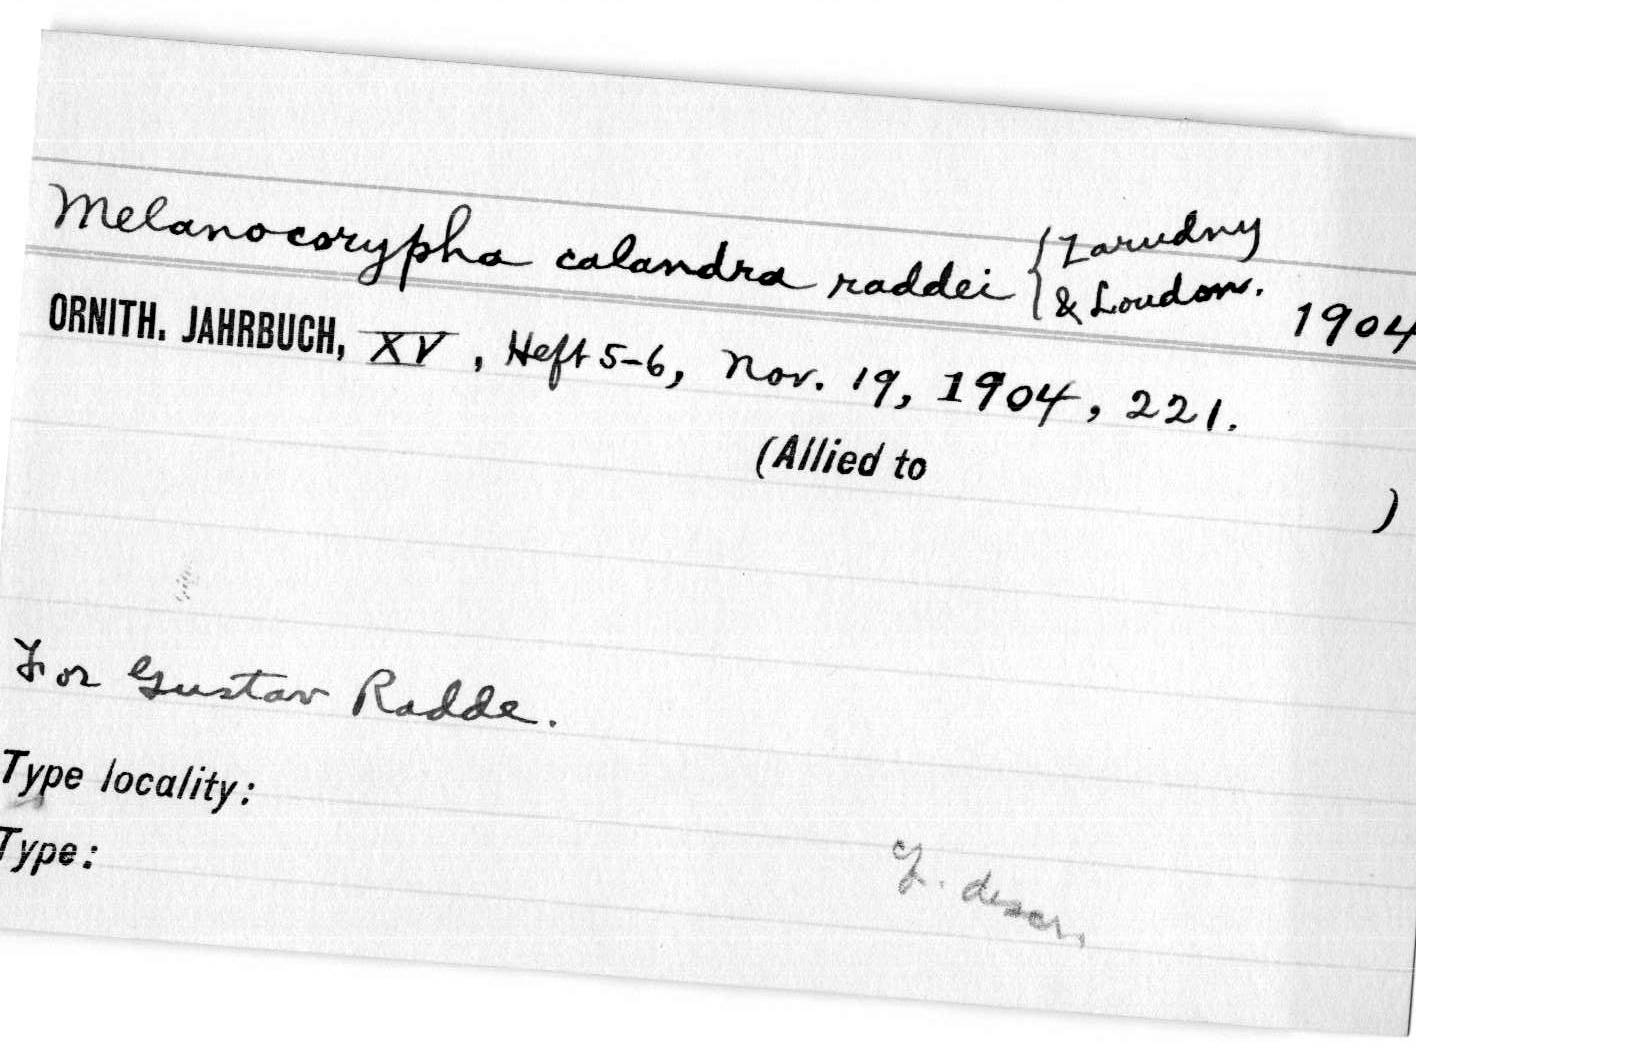 Melanocorypha calandra raddei { Zarudny
& Loudon. 1904
ORNITH. JAHRBUCH, XV, Heft 5-6, Nov. 19, 1904, 221.
(Allied to )
For Gustav Radde.
Type locality:
Type:
descr.